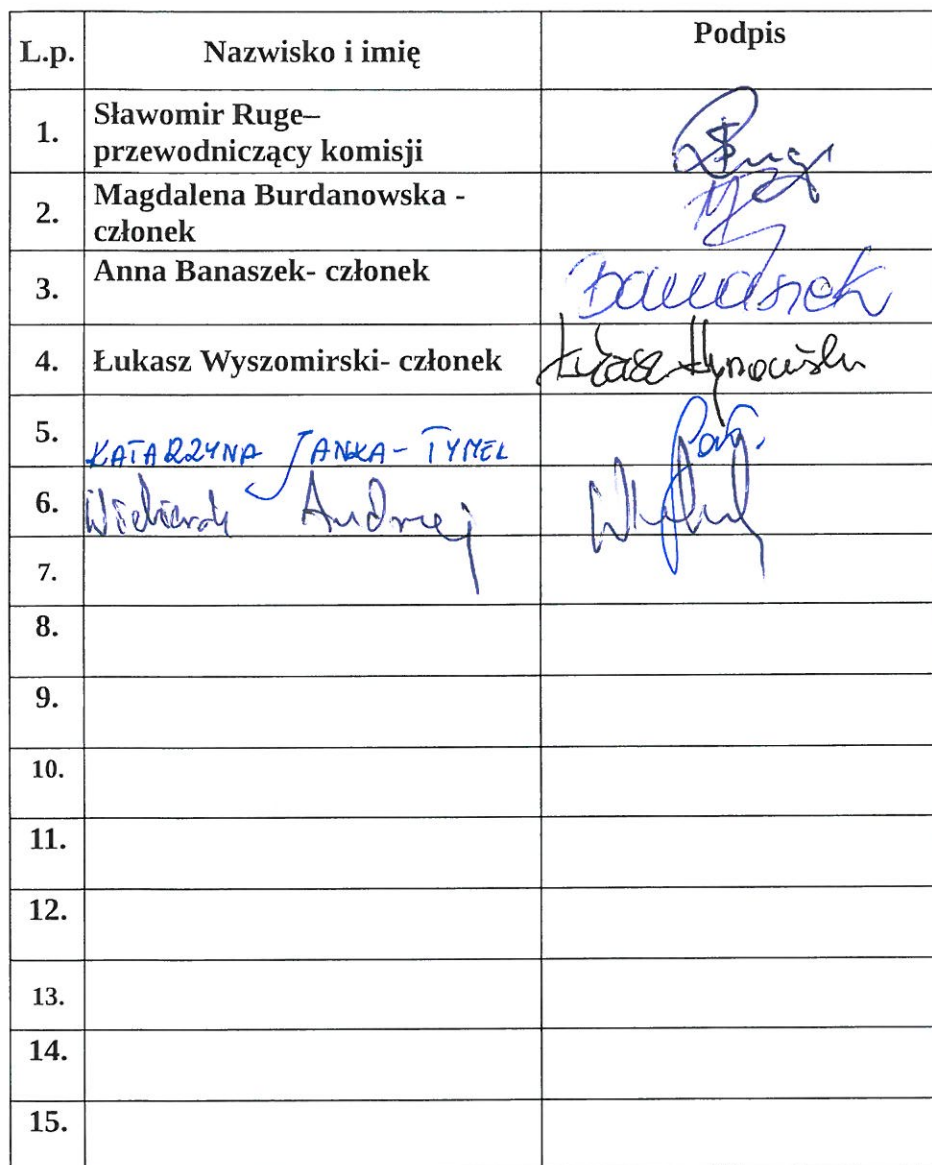 L.p. Nazwisko i imię Podpis
1. Sławomir Ruge–
przewodniczący komisji
2. Magdalena Burdanowska -
członek
3. Anna Banaszek- członek Banaszek
4. Łukasz Wyszomirski- członek Łukasz
5. KATARZYNA JANKA-TYMEL
6. Andrzej
7.
8.
9.
10.
11.
12.
13.
14.
15.